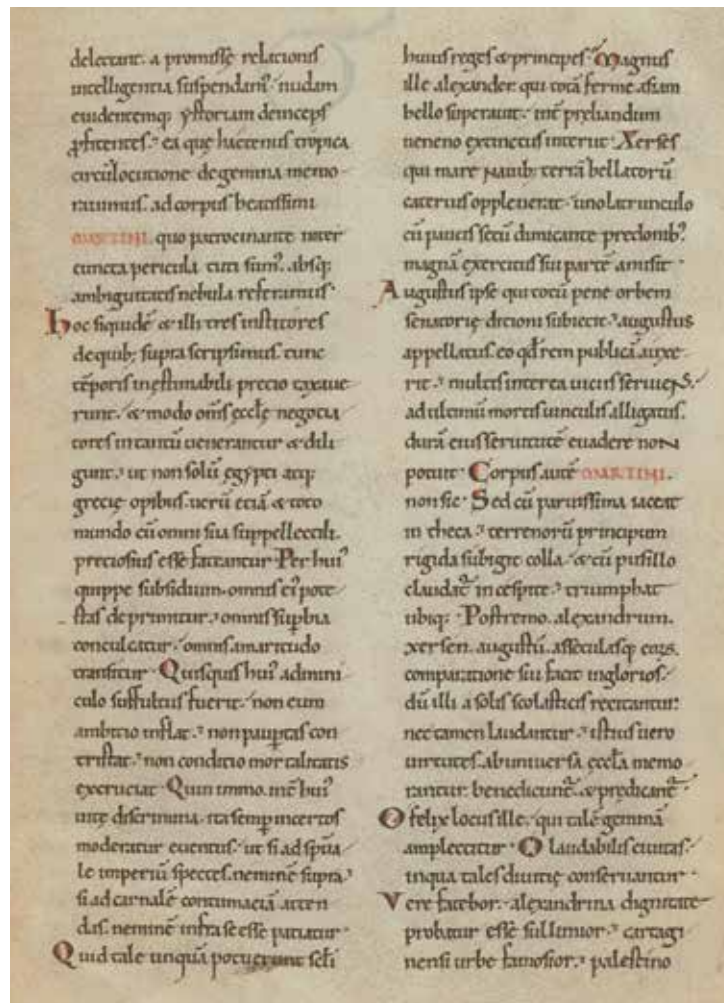 delectant. a promissę relationis
intelligentia suspendam᷒. nudam
euidentemq; ystoriam deinceps
ꝓfitentes. ea que hactenus tropica
circūlocutione de gemma memo
rauimus. ad corpus beatissimi
MARTINI. quo patrocinante inter
cuncta pericula tuti sum᷒. absq;
ambiguitatis nebula referamus.
Hoc siquidē & illi tres institores
de quib; supra scripsimus. tunc
tēporis inęstimabili precio taxaue
runt. & modo om̄s ęcclę negotia
tores in tantū uenerantur & dili
gunt. ut non solū ęgypti atq;
gręcię opibus. uerū etiā & toto
mundo cū omni sua suppellectili.
preciosius essē fateantur. Per hui᷒
quippe subsidium. omnis ei᷒ pote
stas deprimitur. omnis suꝑbia
conculcatur. omnis amaritudo
transitur. Quisquis hui᷒ admini
culo suffultus fuerit. non eum
ambitio inflat. non pauꝑtas con
tristat. non conditio mortalitatis
excruciat. Quin immo. int̄ hui᷒
uitę discrimina. ita semꝑ incertos
moderatur euentus. ut si ad spūa
le imperiū spectes. neminē supra.
si ad carnalē contumaciā atten
das. neminē infra se essē patiatur.
Quid tale unquā potuerunt sc̄li
huius reges & principes. Magnus
ille alexander. qui totā ferme asiam
bello superauit. int̄ pręliandum
ueneno extinctus interiit. Xerses
qui mare nauib; terrā bellatorū
cateruis oppleuerat. uno latrunculo
cū paucis secū dimicante predonib᷒.
magnā exercitus sui partē amisit.
Augustus ipse qui totū pene orbem
senatorię ditioni subiecit. augustus
appellatus. eo qđ rem publicā auxe
rit. multis interea uiciis seruiens.
ad ultimū mortis uinculis alligatus.
durā eius seruitutē euadere non
potuit. Corpus autē MARTINI.
non sic. Sed cū paruissima iaceat
in theca. terrenorū principum
rigida subigit colla. & cū pusillo
claudat᷒ in cespite. triumphat
ubiq;. Postremo. alexandrum.
xersen. augustū. asseculasq; eoꝝ.
comparatione sui facit inglorios.
dū illi a solis scolasticis recitantur.
nec tamen laudantur. istius uero
uirtutes. ab uniuersa ęccła memo
rantur. benedicunt᷒. & prędicant᷒.
O felix locus ille. qui talē gemmā
amplectitur. O laudabilis ciuitas.
in qua tales diuitię conseruantur.
Vere fatebor. alexandrina dignitate
probatur essē sullimior. cartagi
nensi urbe famosior. palestino